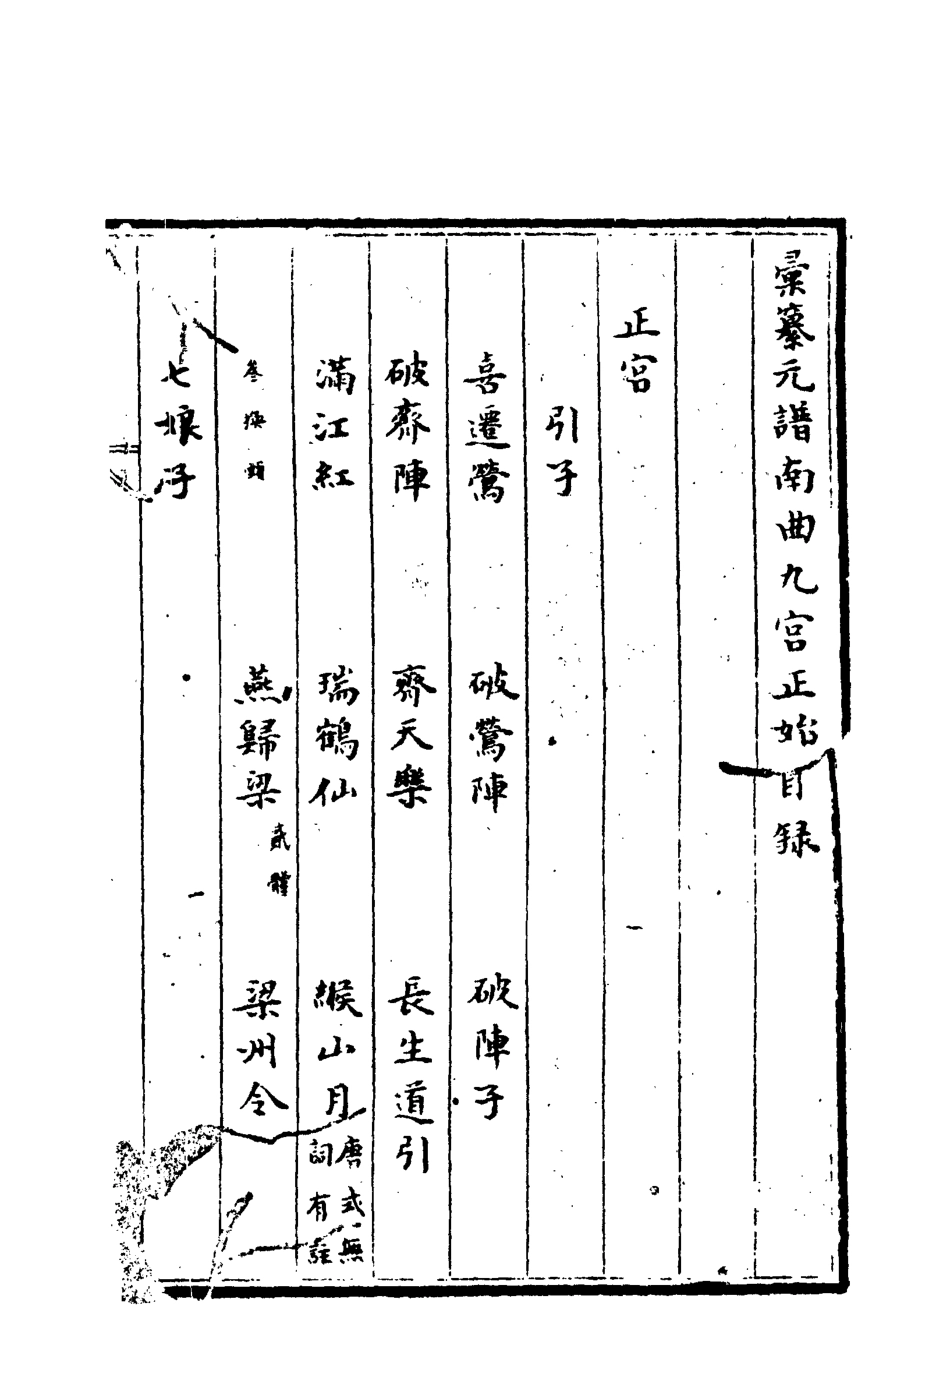 彙纂元譜南曲九宮正始目録
正宮
引子
喜遷鶯 破鶯陣 破陣子
破齊陣 齊天樂 長生道引
滿江紅 瑞鶴仙 緱山月 唐式無詞有註
叁換頭 燕歸梁 貳體 梁州令
七娘子